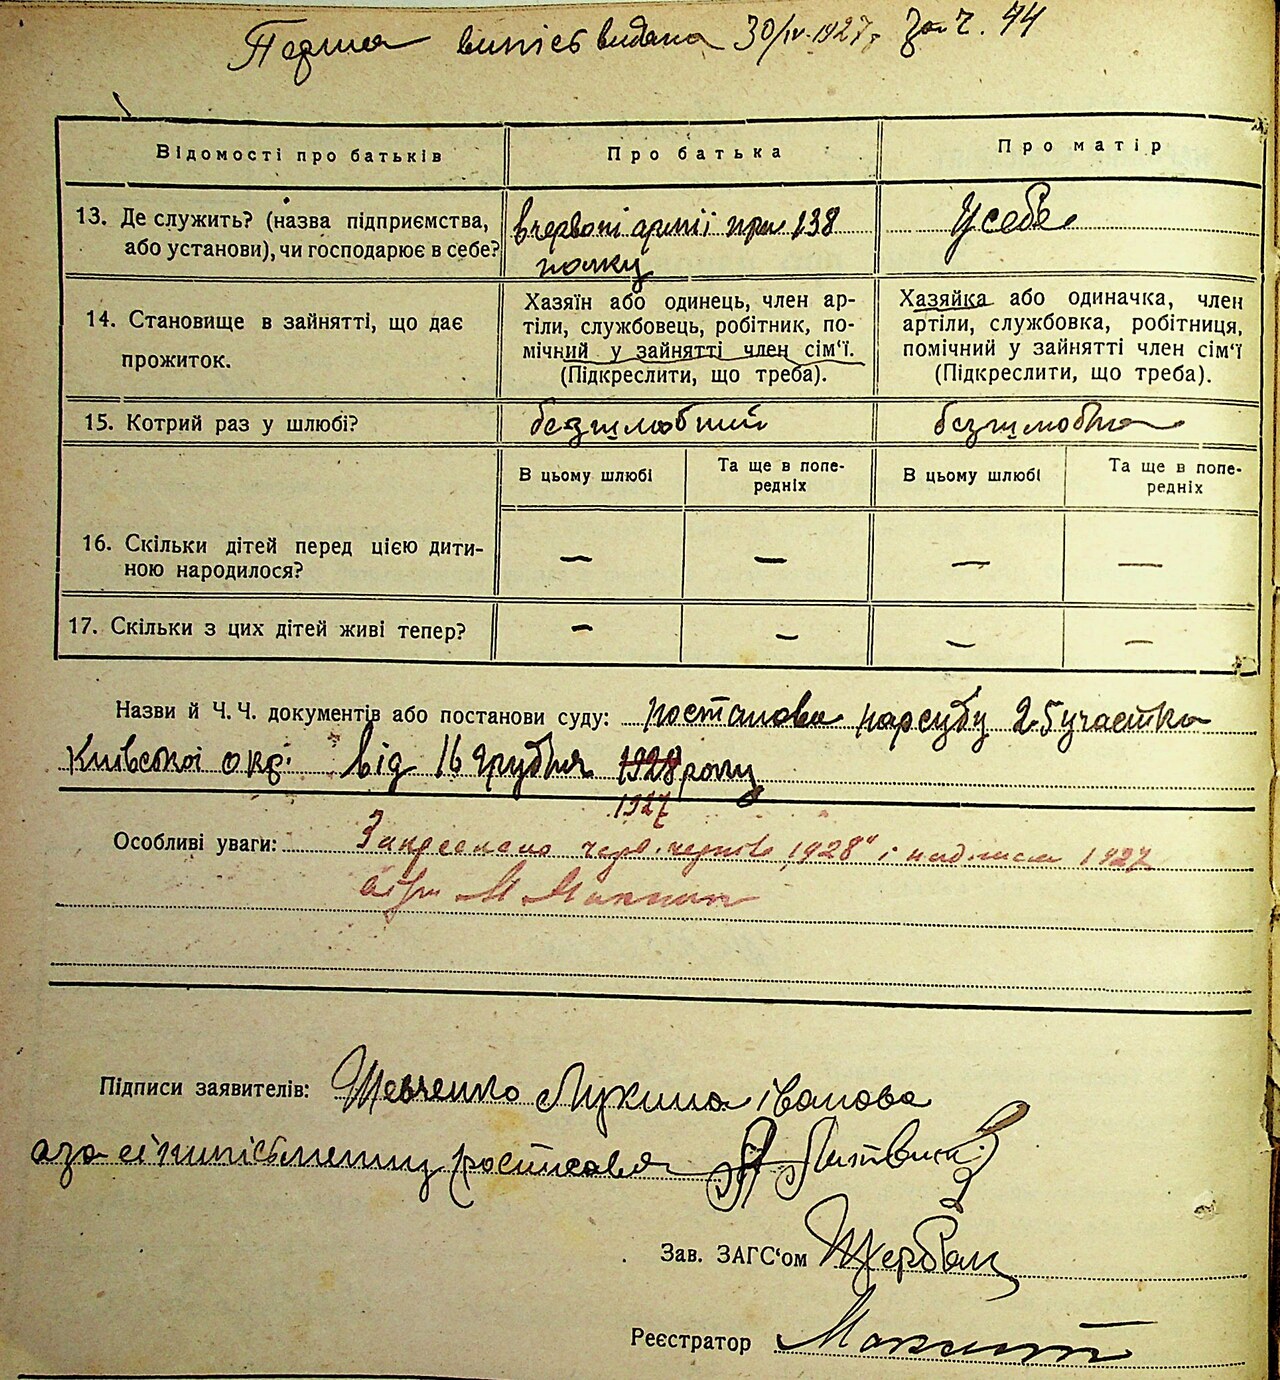 Перша випісь видана 30/IV-1927р за ч. 44
Відомості про батьків
Про батька
Про матір
13. Де служить? (назва підприємства, або установи), чи господарює в себе?
в червоні армії при 138
полку
у себе
14. Становище в зайнятті, що дає
прожиток.
Хазяїн або одинець, член ар-
тіли, службовець, робітник, по-
мічний у зайнятті член сім‘ї.
(Підкреслити, що треба).
Хазяйка або одиначка, член
артіли, службовка, робітниця,
помічний у зайнятті член сім‘ї
(Підкреслити, що треба).
15. Котрий раз у шлюбі?
безшлюбний
безшлюбна
В цьому шлюбі
Та ще в попе-
редніх
В цьому шлюбі
Та ще в попе-
редніх
16. Скільки дітей перед цією дити-
ною народилося?
— — — —
17. Скільки з цих дітей живі тепер?
— — — —
Назви й Ч. Ч. документів або постанови суду: постанова нарсуду 25 участка
Київської окр: від 16 грудня 1928 року
1927
Особливі уваги: Закреслено черв. чорнів „1928“ і надписан 1927
Підписи заявителів: Шевченко Лукина іванова
а за еі нипісьменну росписався Литвин
Зав. ЗАГС‘ом Щербан
Реєстратор